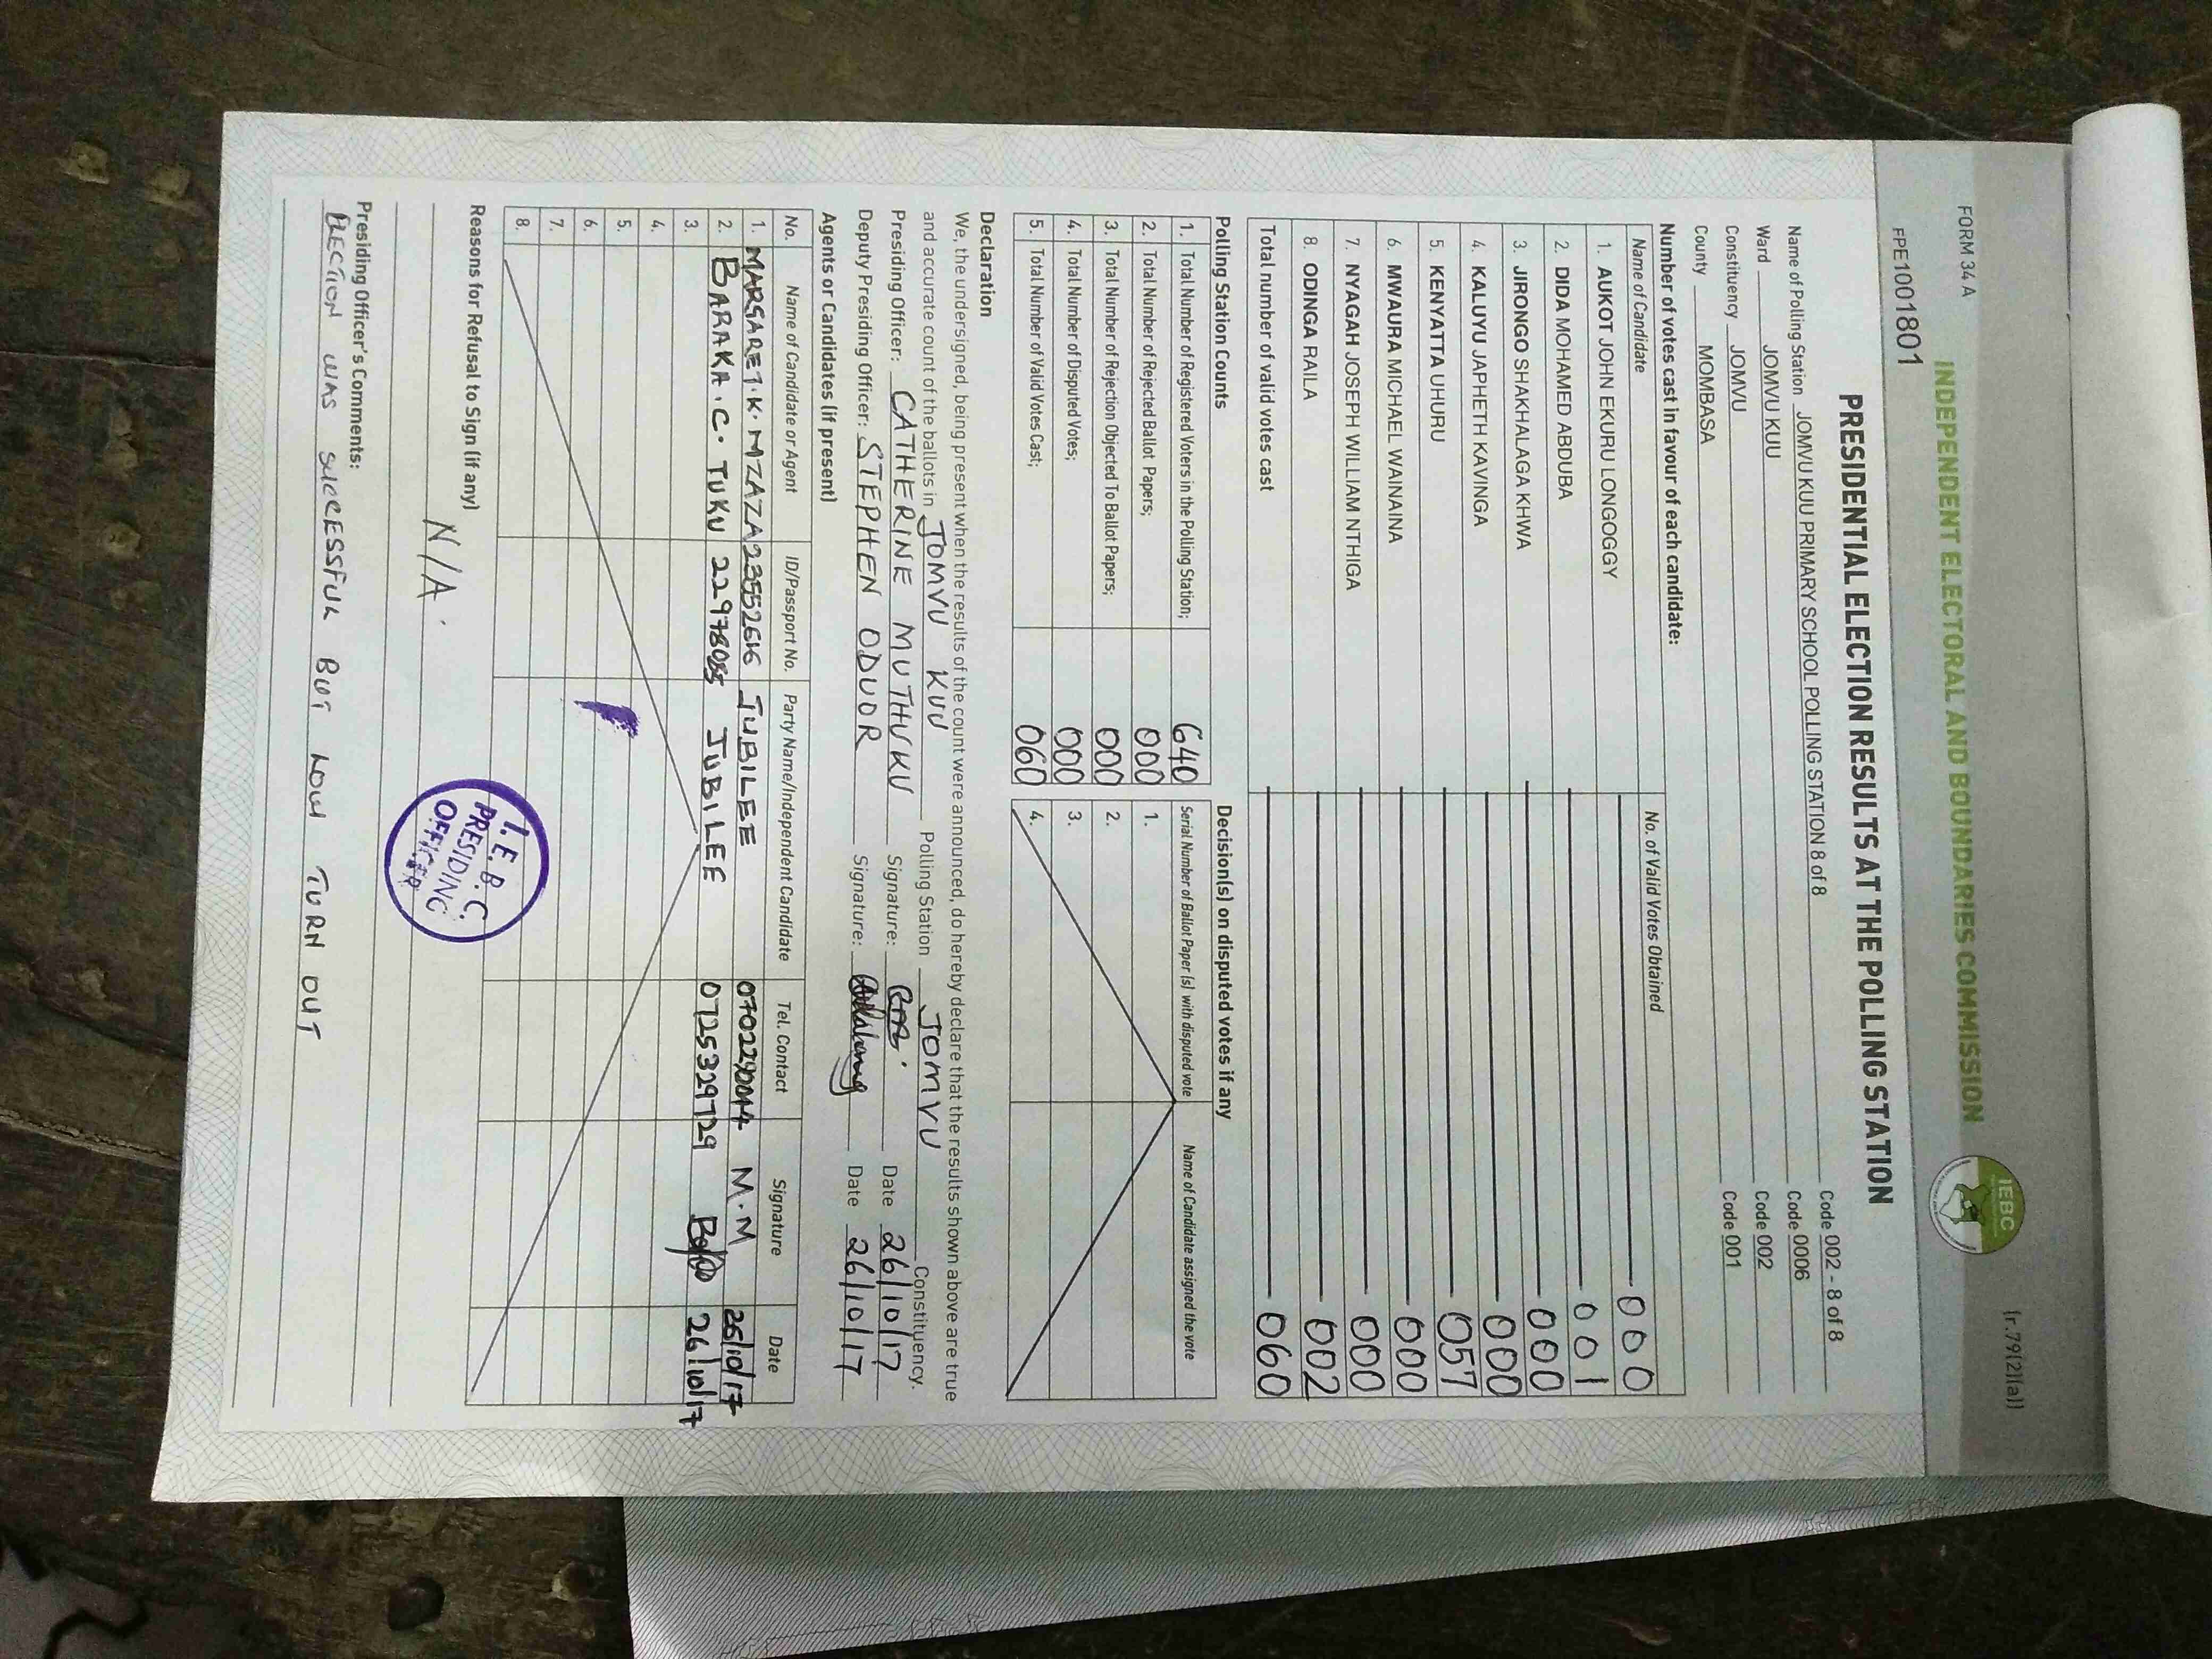 FORM 34 A
(r.79(2)(a))
INDEPENDENT ELECTORAL AND BOUNDARIES COMMISSION
IEBC
FPE1001801
PRESIDENTIAL ELECTION RESULTS AT THE POLLING STATION
Name of Polling Station JOMVU KUU PRIMARY SCHOOL POLLING STATION 8 of 8 Code 002 - 8 of 8
Ward JOMVU KUU Code 0006
Constituency JOMVU Code 002
County MOMBASA Code 001
Number of votes cast in favour of each candidate:
Name of Candidate No. of Valid Votes Obtained
1. AUKOT JOHN EKURU LONGOGGY 000
2. DIDA MOHAMED ABDUBA 001
3. JIRONGO SHAKHALAGA KHWA 000
4. KALUYU JAPHETH KAVINGA 000
5. KENYATTA UHURU 057
6. MWAURA MICHAEL WAINAINA 000
7. NYAGAH JOSEPH WILLIAM NTHIGA 000
8. ODINGA RAILA 002
Total number of valid votes cast 060
Polling Station Counts Decision(s) on disputed votes if any
1. Total Number of Registered Voters in the Polling Station; 640 Serial Number of Ballot Paper (s) with disputed vote Name of Candidate assigned the vote
2. Total Number of Rejected Ballot Papers; 000 1.
3. Total Number of Rejection Objected To Ballot Papers; 000 2.
4. Total Number of Disputed Votes; 000 3.
5. Total Number of Valid Votes Cast; 060 4.
Declaration
We, the undersigned, being present when the results of the count were announced, do hereby declare that the results shown above are true
and accurate count of the ballots in JOMVU KUU Polling Station JOMVU Constituency.
Presiding Officer: CATHERINE MUTHUKU Signature: Date 26/10/17
Deputy Presiding Officer: STEPHEN ODUOR Signature: Date 26/10/17
Agents or Candidates (if present)
No. Name of Candidate or Agent ID/Passport No. Party Name/Independent Candidate Tel. Contact Signature Date
1. MARGARET.K.MZAZA JUBILEE M.M 26/10/17
2. BARAKA.C.TUKU JUBILEE 0725329729 26/10/17
3.
4.
5.
6.
7.
8.
Reasons for Refusal to Sign (if any)
N/A.
I.E.B.C.
PRESIDING
OFFICER
Presiding Officer's Comments:
ELECTION WAS SUCCESSFUL BUT LOW TURN OUT